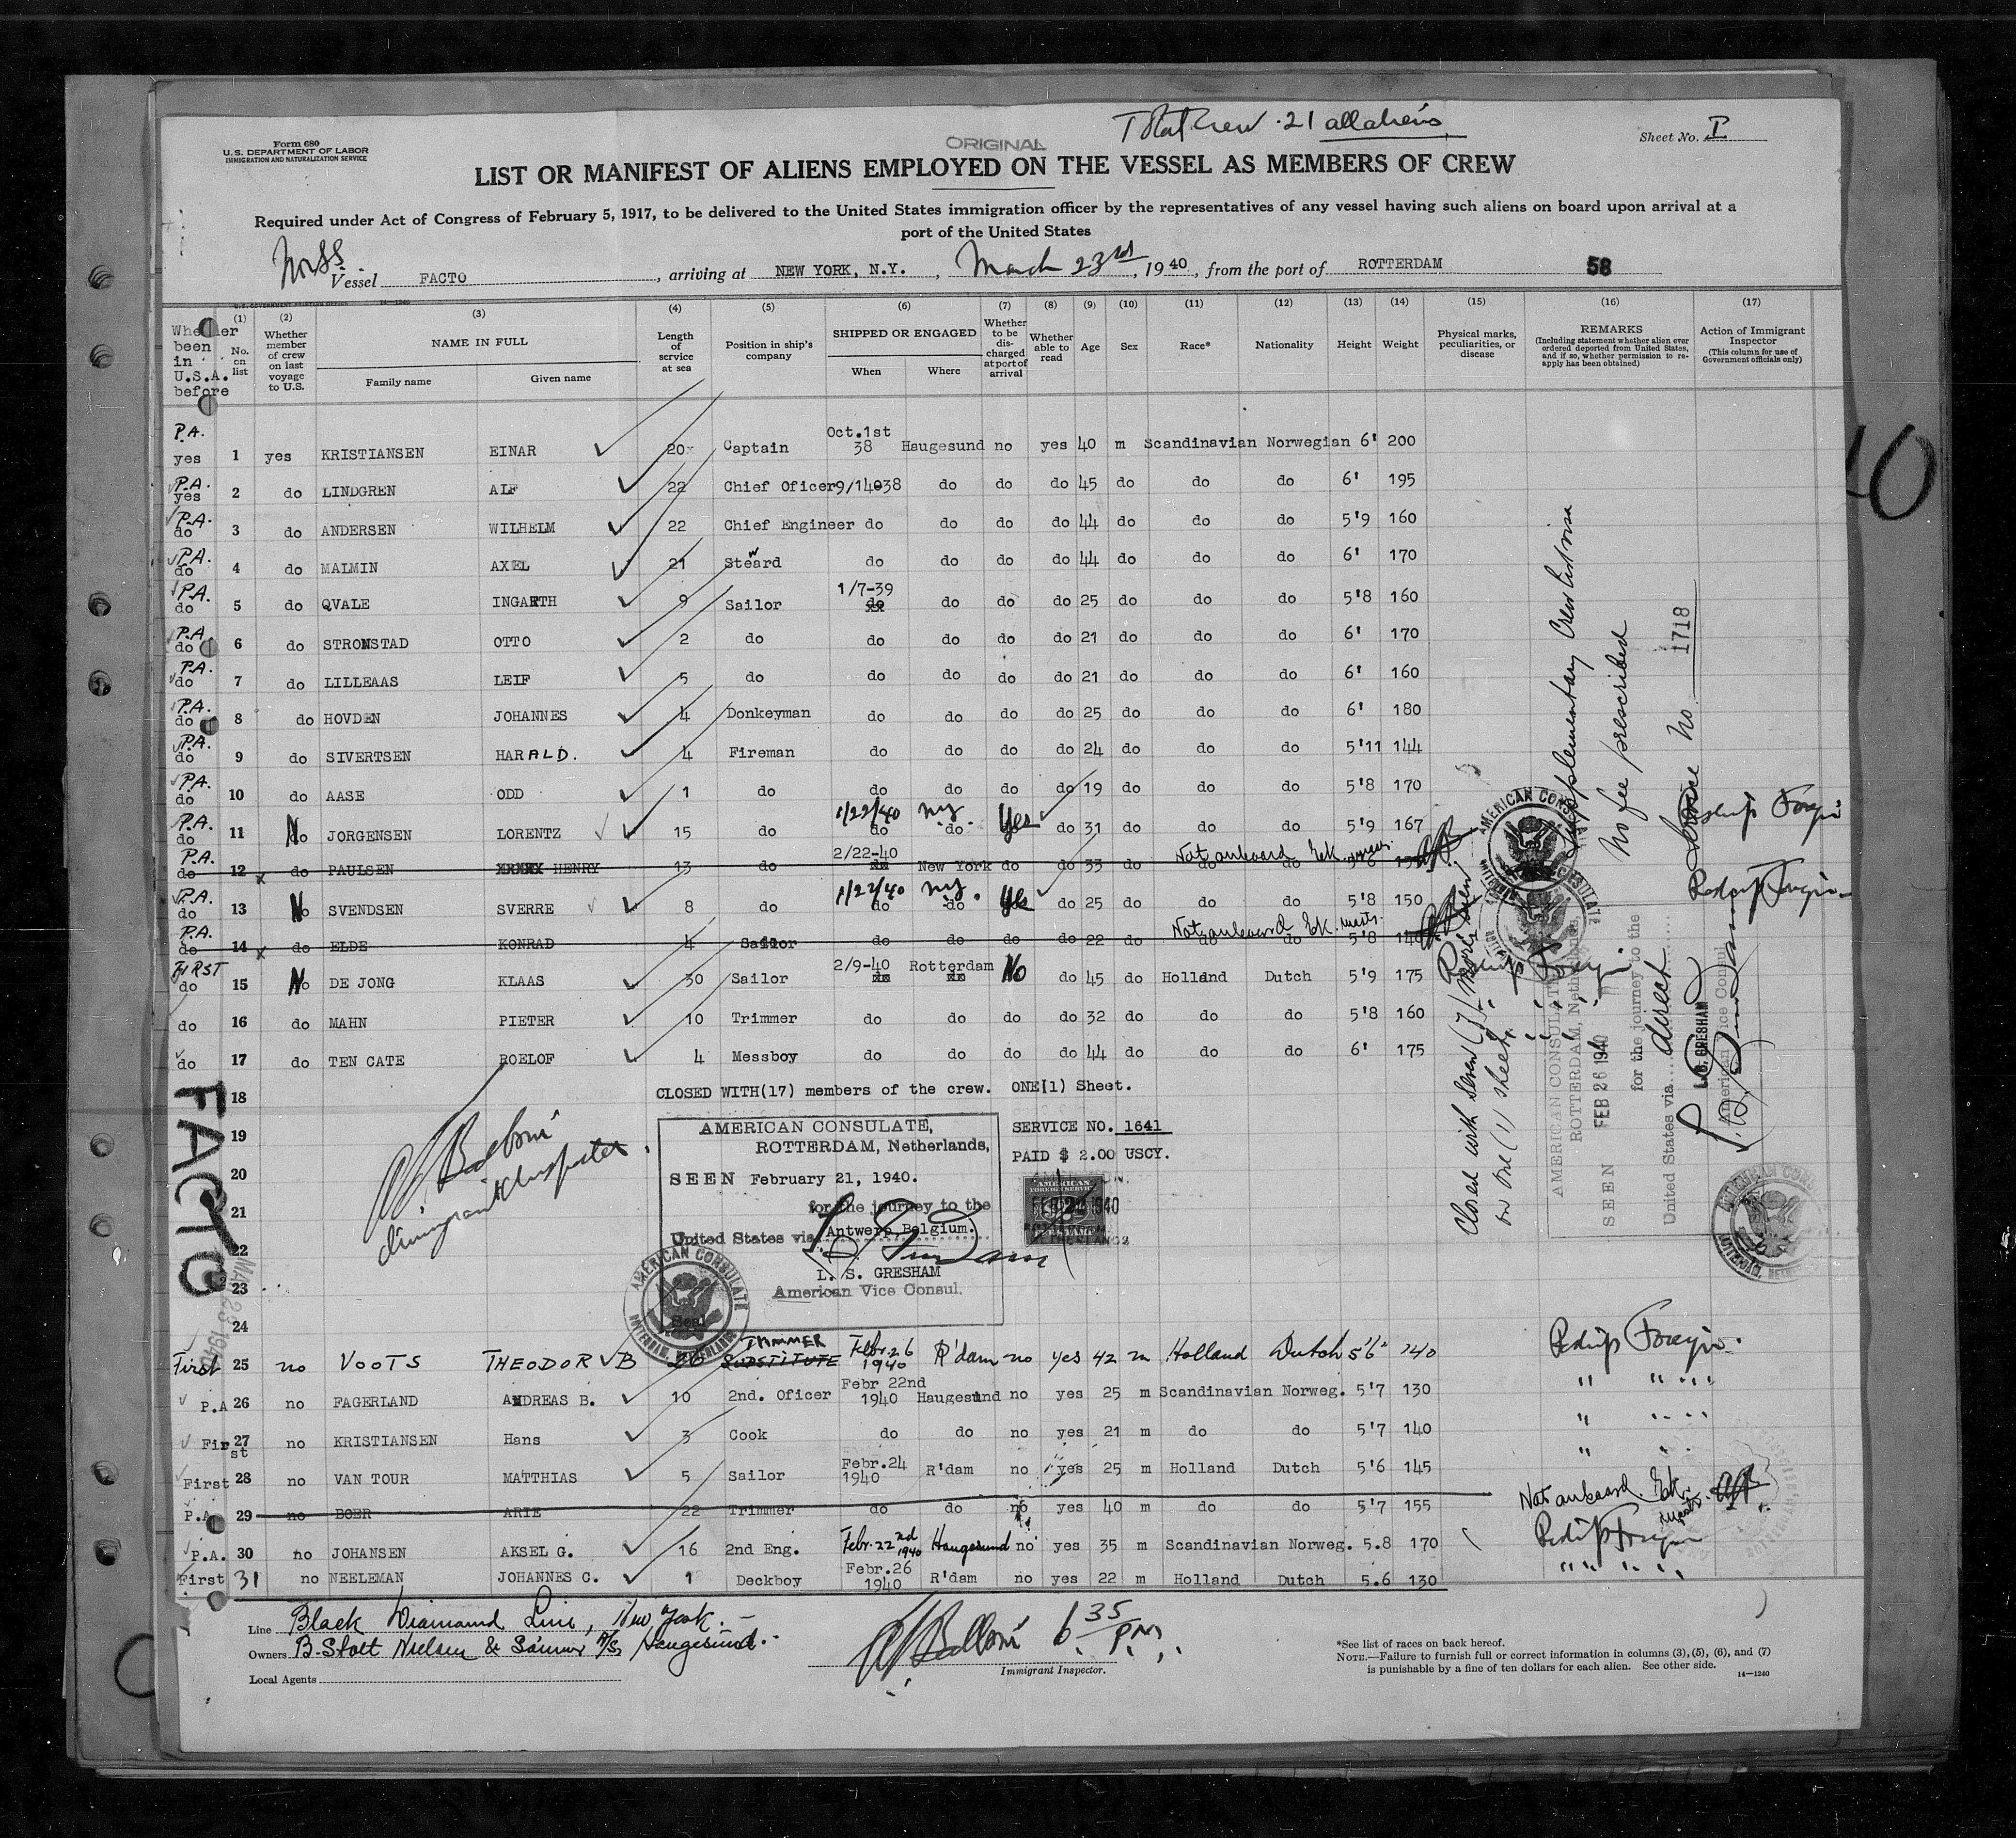 Form 680
U.S. DEPARTMENT OF LABOR
IMMIGRATION AND NATURALIZATION SERVICE
ORIGINAL
Total Crew . 21 all aliens
Sheet No. I
LIST OR MANIFEST OF ALIENS EMPLOYED ON THE VESSEL AS MEMBERS OF CREW
Required under Act of Congress of February 5, 1917, to be delivered to the United States immigration officer by the representatives of any vessel having such aliens on board upon arrival at a
port of the United States
Vessel FACTO , arriving at NEW YORK, N.Y. , March 23rd , 1940 , from the port of ROTTERDAM 58
Whether been in U.S.A. before
(1) No. on list
(2) Whether member of crew on last voyage to U.S.
(3) NAME IN FULL
Family name Given name
(4) Length of service at sea
(5) Position in ship's company
(6) SHIPPED OR ENGAGED
When Where
(7) Whether to be discharged at port of arrival
(8) Whether able to read
(9) Age
(10) Sex
(11) Race*
(12) Nationality
(13) Height
(14) Weight
(15) Physical marks, peculiarities, or disease
(16) REMARKS
(Including statement whether alien ever ordered deported from United States, and if so, whether permission to reapply has been obtained)
(17) Action of Immigrant Inspector
(This column for use of Government officials only)
P.A. yes 1 yes KRISTIANSEN EINAR 20 Captain Oct.1st 38 Haugesund no yes 40 m Scandinavian Norwegian 6' 200
P.A. yes 2 do LINDGREN ALF 22 Chief Oficer 9/14-38 do do do 45 do do do 6' 195
P.A. do 3 do ANDERSEN WILHELM 22 Chief Engineer do do do do 44 do do do 5'9 160
P.A. do 4 do MALMIN AXEL 21 Steward do do do do 44 do do do 6' 170
P.A. do 5 do QVALE INGARTH 9 Sailor 1/7-39 do do do 25 do do do 5'8 160
P.A. do 6 do STRONSTAD OTTO 2 do do do do do 21 do do do 6' 170
P.A. do 7 do LILLEAAS LEIF 5 do do do do do 21 do do do 6' 160
P.A. do 8 do HOVDEN JOHANNES 4 Donkeyman do do do do 25 do do do 6' 180
P.A. do 9 do SIVERTSEN HARALD. 4 Fireman do do do do 24 do do do 5'11 144
P.A. do 10 do AASE ODD 1 do do do do do 19 do do do 5'8 170
P.A. do 11 No JORGENSEN LORENTZ 15 do 1/22/40 do ny. do Yes do 31 do do do 5'9 167
P.A. do 12 x do PAULSEN HENRY 13 do 2/22-40 New York do do 33 do Not onboard
P.A. do 13 No SVENDSEN SVERRE 8 do 1/22/40 do ny. do Yes do 25 do do do 5'8 150
P.A. do 14 x do ELDE KONRAD 4 Sailor do do do do 22 do do do 5'8 140 Not onboard
FIRST do 15 No DE JONG KLAAS 30 Sailor 2/9-40 Rotterdam No do 45 do Holland Dutch 5'9 175
do 16 do MAHN PIETER 10 Trimmer do do do do 32 do do do 5'8 160
do 17 do TEN CATE ROELOF 4 Messboy do do do do 44 do do do 6' 175
18 CLOSED WITH(17) members of the crew. ONE(1) Sheet.
19
20
21
22
23
24
FACTO
MAR 23 1940
AMERICAN CONSULATE,
ROTTERDAM, Netherlands,
SEEN February 21, 1940.
for the journey to the
United States via Antwerp Belgium.
L. S. GRESHAM
American Vice Consul.
Seal
AMERICAN CONSULATE
ROTTERDAM, NETHERLANDS
SERVICE NO. 1641
PAID $ 2.00 USCY.
Immigrant Inspector
Supplementary Crew list visa
No fee prescribed
Service No. 1718
Closed with seven (7) more men
on one (1) sheet.
AMERICAN CONSULATE
ROTTERDAM, Netherlands,
SEEN FEB 26 1940
for the journey to the
United States via direct
L. S. GRESHAM
American Vice Consul
First 25 no VOOTS THEODOR B 26 TRIMMER SUBSTITUTE Febr. 26 1940 R'dam no yes 42 m Holland Dutch 5'6" 140
P.A 26 no FAGERLAND ANDREAS B. 10 2nd. Oficer Febr 22nd 1940 Haugesund no yes 25 m Scandinavian Norweg. 5'7 130
First 27 no KRISTIANSEN Hans 3 Cook do do no yes 21 m do do 5'7 140
First 28 no VAN TOUR MATTHIAS 5 Sailor Febr.24 1940 R'dam no yes 25 m Holland Dutch 5'6 145
P.A. 29 no BOER ARIE 22 Trimmer do do no yes 40 m do do 5'7 155 Not onboard
P.A. 30 no JOHANSEN AKSEL G. 16 2nd Eng. Febr. 22nd 1940 Haugesund no yes 35 m Scandinavian Norweg. 5.8 170
First 31 no NEELEMAN JOHANNES C. 1 Deckboy Febr.26 1940 R'dam no yes 22 m Holland Dutch 5.6 130
Line Black Diamond Line, New York.
Owners B. Stolt Nielsen & Sönner A/S, Haugesund.
Local Agents
6 35 P.M.
Immigrant Inspector.
*See list of races on back hereof.
NOTE.—Failure to furnish full or correct information in columns (3), (5), (6), and (7)
is punishable by a fine of ten dollars for each alien. See other side. 14—1240